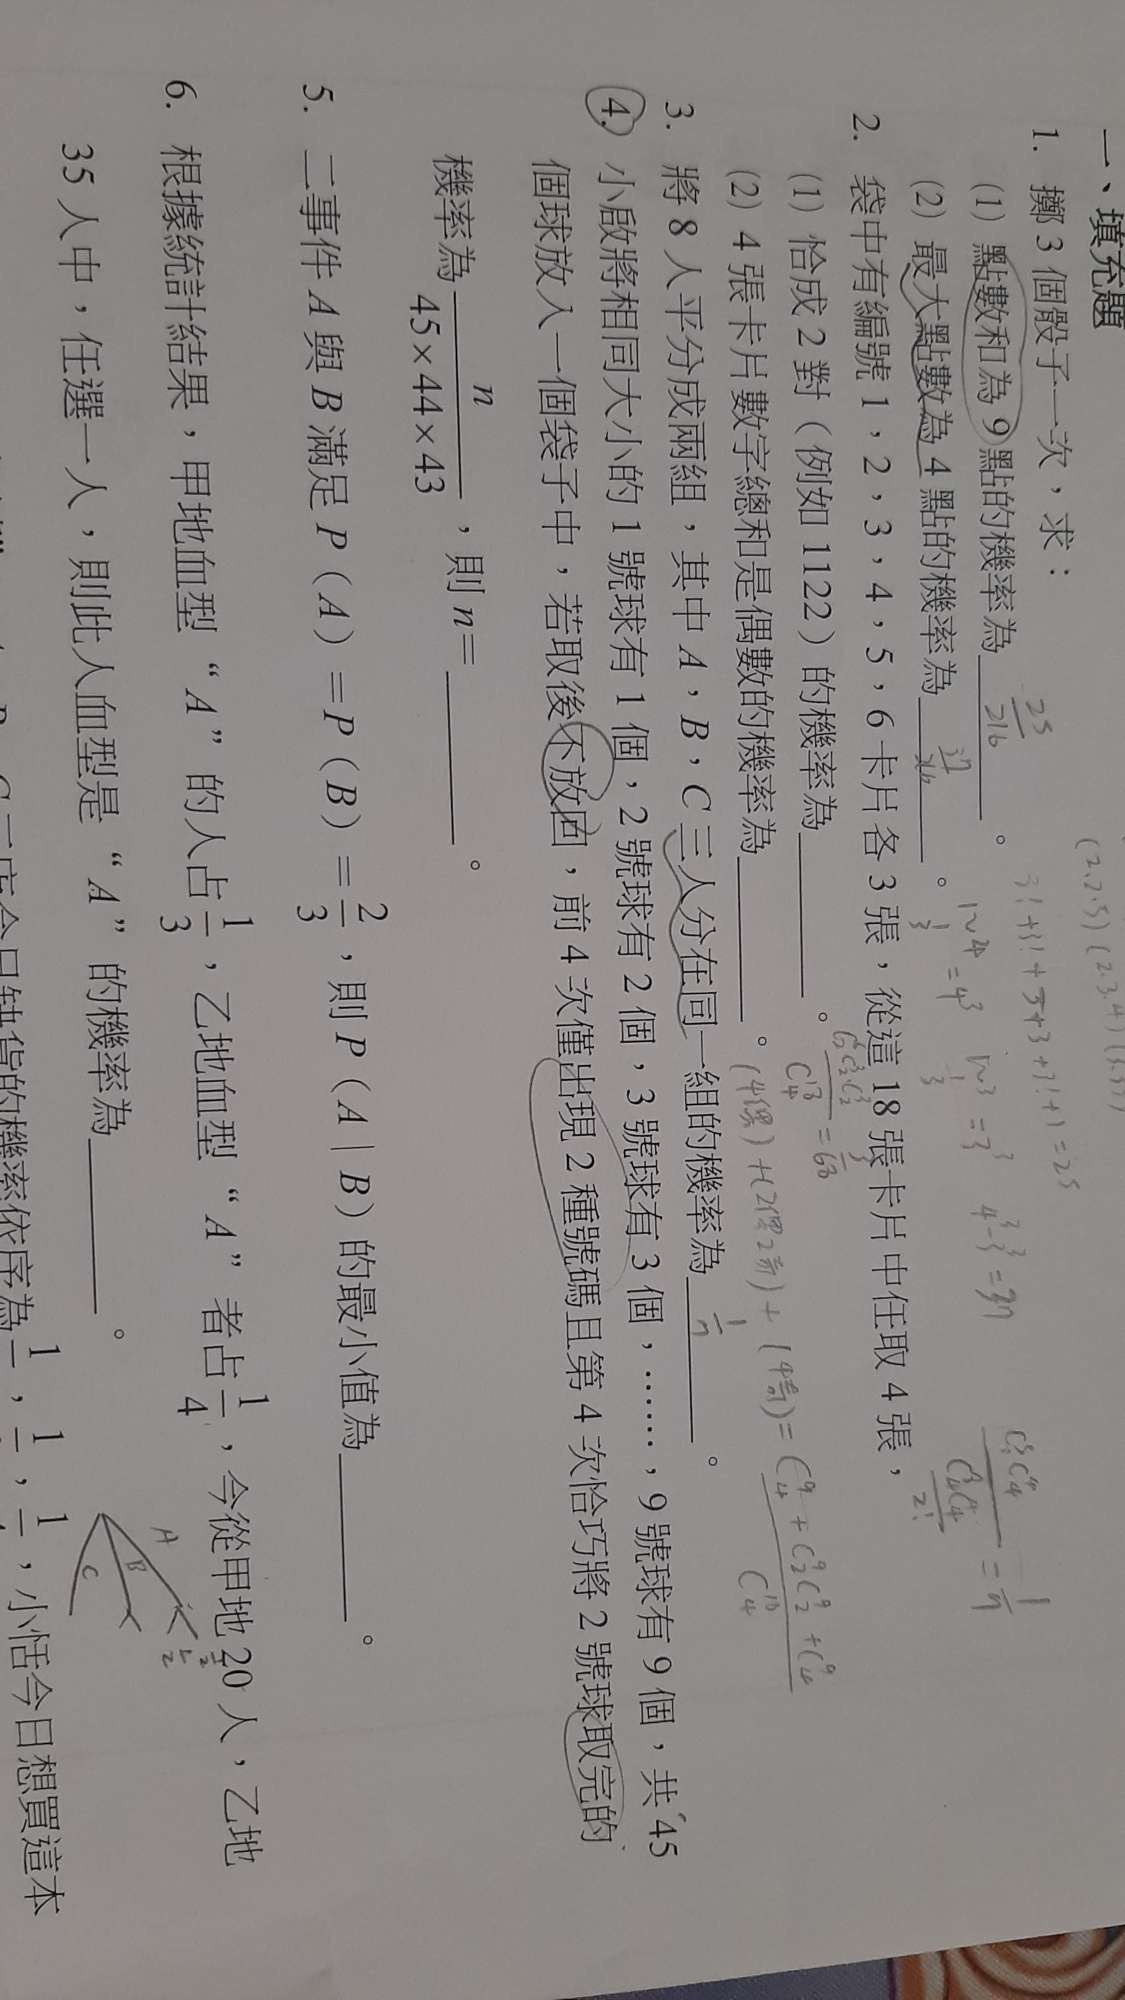 一、填充題
1. 擲 3 個骰子一次，求：
(1) 點數和為 9 點的機率為 25/216 。
(2) 最大點數為 4 點的機率為 37/216 。
2. 袋中有編號 1，2，3，4，5，6 卡片各 3 張，從這 18 張卡片中任取 4 張，
(1) 恰成 2 對（例如 1122）的機率為＿＿＿。
(2) 4 張卡片數字總和是偶數的機率為＿＿＿。
3. 將 8 人平分成兩組，其中 A，B，C 三人分在同一組的機率為 1/7 。
4. 小啟將相同大小的 1 號球有 1 個，2 號球有 2 個，3 號球有 3 個，……，9 號球有 9 個，共 45
個球放入一個袋子中，若取後不放回，前 4 次僅出現 2 種號碼且第 4 次恰巧將 2 號球取完的
機率為 n/(45×44×43)，則 n=＿＿＿。
5. 二事件 A 與 B 滿足 P（A）＝P（B）＝2/3，則 P（A｜B）的最小值為＿＿＿。
6. 根據統計結果，甲地血型“A”的人占 1/3，乙地血型“A”者占 1/4，今從甲地 20 人，乙地
35 人中，任選一人，則此人血型是“A”的機率為＿＿＿。
缺貨的機率依序為 小恬今日想買這本
(2,2,5) (2,3,4)
3!+3!+3+3+3!+1=25
1~4 = 4³ 1~3 = 3³ 4³-3³=37
(4偶)+(2偶2奇)+(4奇)=
A
B
C